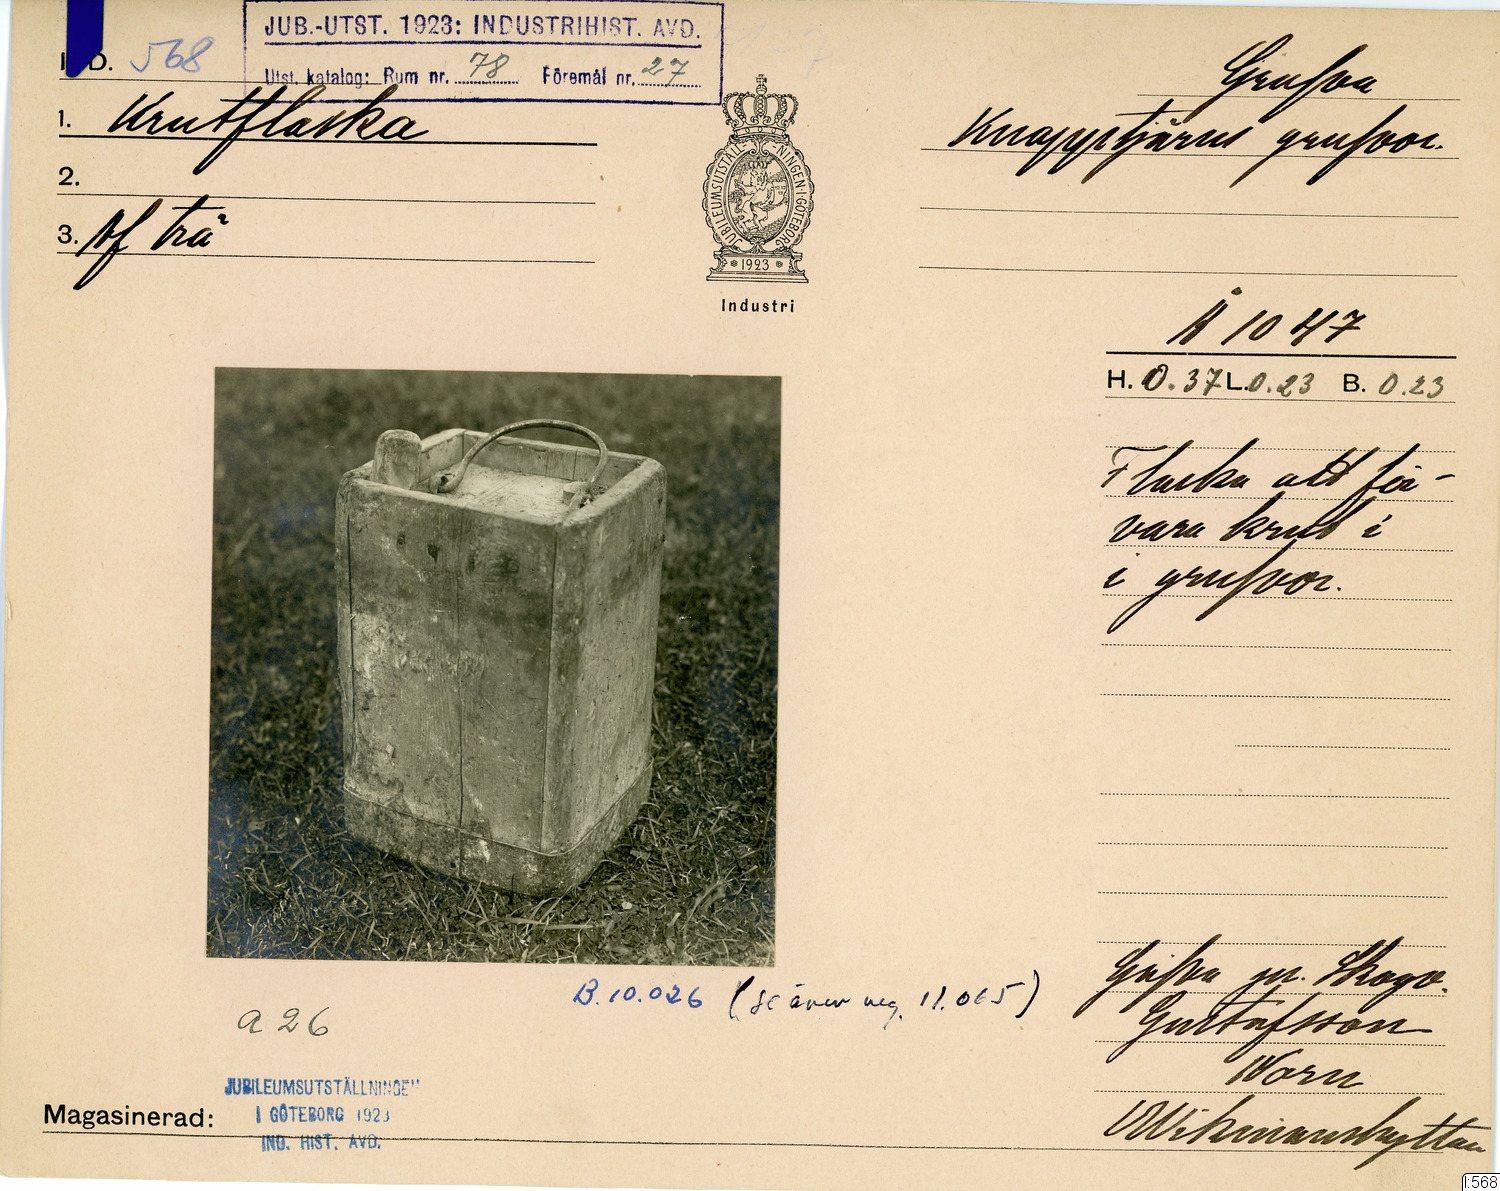 JUB.-UTST. 1923: INDUSTRIHIST. AVD.
Utst. katalog: Rum nr. 78 Föremål nr. 27
D. 568
1. Krutflaska
2.
3. Af trä
JUBILEUMSUTSTÄLL-NINGEN·I·GÖTEBORG
1923
Industri
Grufva
Knapptjärns grufvor.
Å 1047
H. 0.37 L. 0.23 B. 0.23
Flaska att för-
vara krut i
i grufvor.
B.10.026 (se även neg. 11.065)
a 26
Skogv.
Gustafsson
Norn
Wikmanshyttan
JUBILEUMSUTSTÄLLNINGEN
I GÖTEBORG 1923
IND. HIST. AVD.
Magasinerad:
I:568